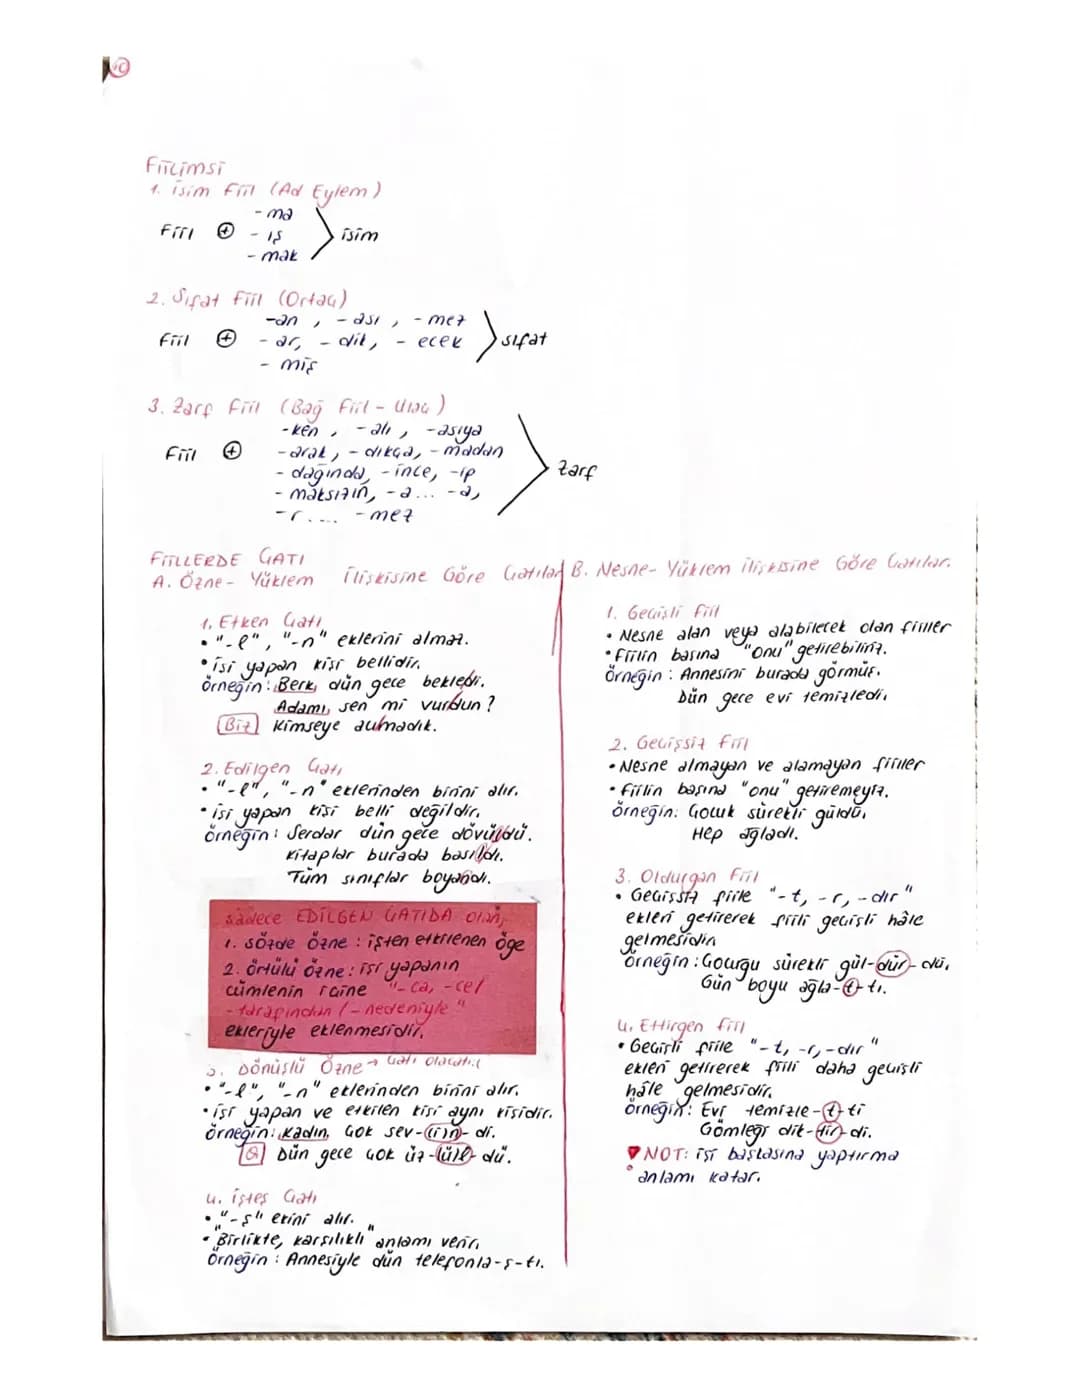 Fiilimsi
1. İsim Fiil (Ad Eylem)
-ma
Fiil + -ış isim
-mak
2. Sıfat Fiil (Ortaç)
-an, -ası, -mez
Fiil + -ar, -dik, -ecek sıfat
-miş
3. Zarf Fiil (Bağ Fiil - Ulaç)
-ken, -alı, -asıya
Fiil + -arak, -dıkça, -madan
-dağında, -ince, -ip zarf
-maksızın, -a... -a,
-r.... -mez
FİİLLERDE ÇATI
A. Özne-Yüklem İlişkisine Göre Çatılar
1. Etken Çatı
• "-l", "-n" eklerini almaz.
• işi yapan kişi bellidir.
örneğin: Berk, dün gece bekledi.
Adamı, sen mi vurdun?
Biz kimseye acımadık.
2. Edilgen Çatı
• "-l", "-n" eklerinden birini alır.
• işi yapan kişi belli değildir.
örneğin: Serdar dün gece dövüldü.
Kitaplar burada basıldı.
Tüm sınıflar boyandı.
Sadece EDİLGEN ÇATIDA olan;
1. sözde özne: işten etkilenen öge
2. örtülü özne: işi yapanın
cümlenin içine "-ca, -ce/
-tarafından/-nedeniyle"
ekleriyle eklenmesidir.
3. Dönüşlü Özne → Çatı olacak
• "-l", "-n" eklerinden birini alır.
• işi yapan ve etkilen kişi aynı kişidir.
örneğin: Kadın, çok sev-(i)n-di.
O Dün gece çok üz-(ü)l-dü.
4. işteş Çatı
• "-ş" ekini alır.
• "Birlikte, karşılıklı" anlamı verir.
örneğin: Annesiyle dün telefonla-ş-tı.
B. Nesne-Yüklem ilişkisine Göre Çatılar.
1. Geçişli Fiil
• Nesne alan veya alabilecek olan fiiller
• Fiilin başına "onu" getirebiliriz.
örneğin: Annesini burada görmüş.
Dün gece evi temizledi.
2. Geçişsiz Fiil
• Nesne almayan ve alamayan fiiller
• Fiilin başına "onu" getiremeyiz.
örneğin: Çocuk sürekli güldü.
Hep ağladı.
3. Oldurgan Fiil
• Geçişsiz fiile "-t, -r, -dır"
ekleri getirerek fiili geçişli hâle
gelmesidir
örneğin: Çocuğu sürekli gül-dür-dü.
Gün boyu ağla-t-tı.
4. Ettirgen Fiil
• Geçişli fiile "-t, -r, -dır"
ekleri getirerek fiili daha geçişli
hâle gelmesidir.
örneğin: Evi temizle-t-ti
Gömleği dik-tir-di.
NOT: işi başkasına yaptırma
anlamı katar.